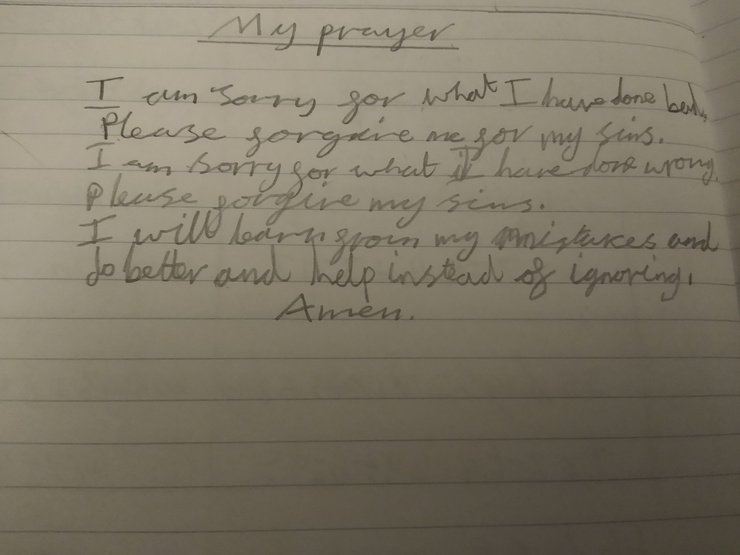 My prayer
I am sorry for what I have done bad.
Please forgive me for my sins.
I am sorry for what I have done wrong.
Please forgive my sins.
I will learn from my mistakes and
do better and help instead of ignoring.
Amen.